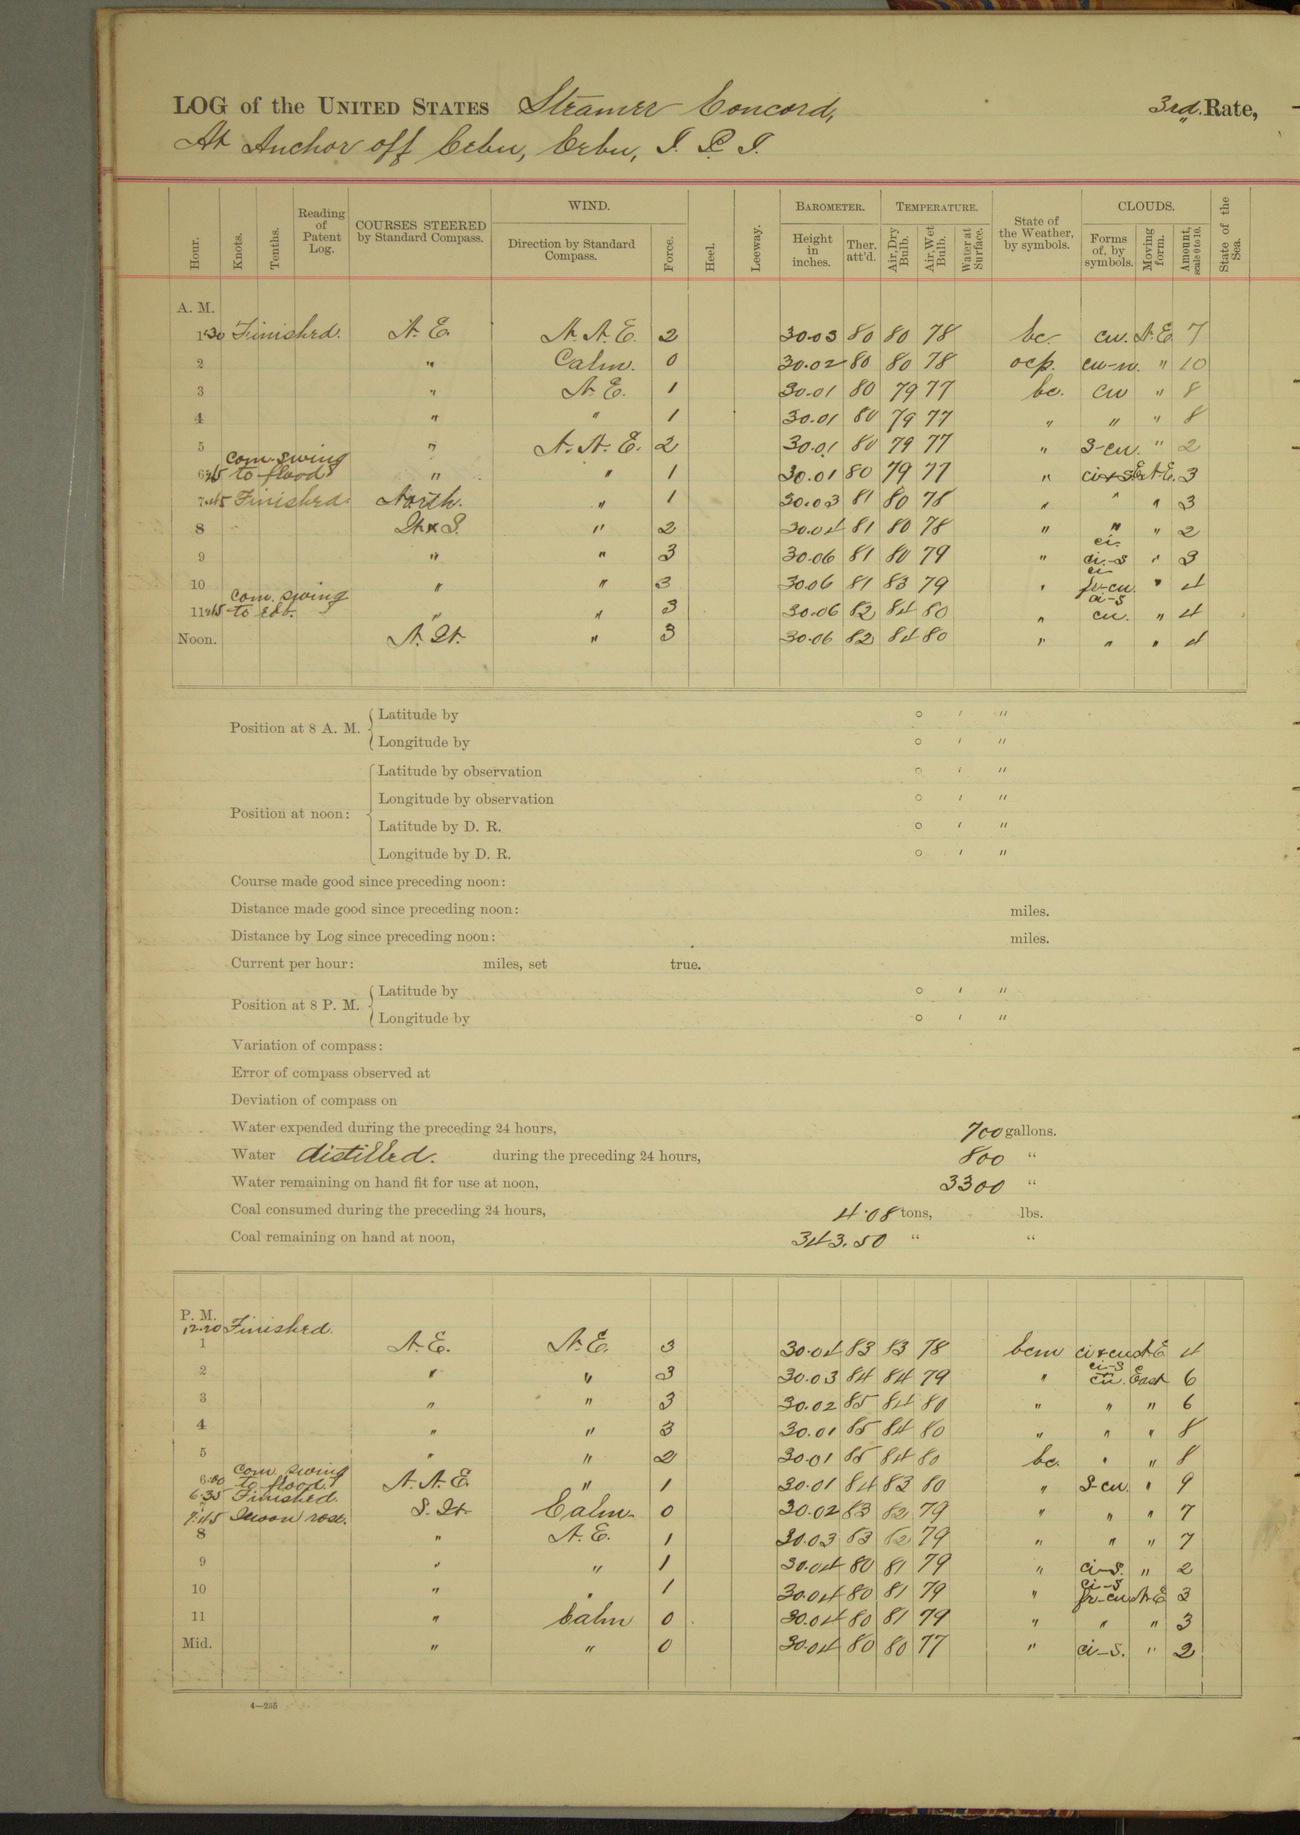 LOG of the UNITED STATES Steamer Concord, 3rd. Rate,
At Anchor off Cebu, Cebu, P. I.
Hour. Knots. Tenths. Reading of Patent Log. COURSES STEERED by Standard Compass. WIND. Direction by Standard Compass. Force. Heel. Leeway. BAROMETER. Height in inches. Ther. att'd. TEMPERATURE. Air, Dry Bulb. Air, Wet Bulb. Water at Surface. State of the Weather, by symbols. CLOUDS. Forms of, by symbols. Moving form. Amount, scale 0 to 10. State of the Sea.
A. M.
1 30 Finished. N. E. N. N. E. 2 30.03 80 80 78 bc. cu. N.E. 7
2 " Calm. 0 30.02 80 80 78 ocp. cu-n. " 10
3 " N. E. 1 30.01 80 79 77 bc. cu " 8
4 " " 1 30.01 80 79 77 " " " 8
5 " N. N. E. 2 30.01 80 79 77 " S-cu. " 2
com. swing
6 to flood " " 1 30.01 80 79 77 " N.E. 3
7.45 Finished. North. " 1 30.03 81 80 78 " " " 3
8 W x S. " 2 30.04 81 80 78 " " " 2
9 " " 3 30.06 81 80 79 " ci. ci-s " 3
10 " " 3 30.06 81 83 79 " ci fr-cu. " 4
com. swing
11.45 to ebb. " " 3 30.06 82 84 80 " ci-s cu. " 4
Noon. N. W. " 3 30.06 82 84 80 " " " 4
Position at 8 A. M. Latitude by ° ′ ″
Longitude by ° ′ ″
Position at noon: Latitude by observation ° ′ ″
Longitude by observation ° ′ ″
Latitude by D. R. ° ′ ″
Longitude by D. R. ° ′ ″
Course made good since preceding noon:
Distance made good since preceding noon: miles.
Distance by Log since preceding noon: miles.
Current per hour: miles, set true.
Position at 8 P. M. Latitude by ° ′ ″
Longitude by ° ′ ″
Variation of compass:
Error of compass observed at
Deviation of compass on
Water expended during the preceding 24 hours, 700 gallons.
Water distilled. during the preceding 24 hours, 800 "
Water remaining on hand fit for use at noon, 3300 "
Coal consumed during the preceding 24 hours, 4.08 tons, lbs.
Coal remaining on hand at noon, 343.50 " "
P. M.
12.20 Finished.
1 N. E. N. E. 3 30.04 83 83 78 bcm ci x cu N.E 4
2 " " 3 30.03 84 84 79 " ci-s cu. East 6
3 " " 3 30.02 85 84 80 " " " 6
4 " " 3 30.01 85 84 80 " " " 8
5 " " 2 30.01 85 84 80 bc. " " 8
com. swing
6.00 to flood. N. N. E. " 1 30.01 84 83 80 " S-cu. " 9
6.35 Finished.
7 S. W. Calm. 0 30.02 83 82 79 " " " 7
7.45 Moon rose.
8 " N. E. 1 30.03 83 82 79 " " " 7
9 " " 1 30.04 80 81 79 " ci-s. " 2
10 " " 1 30.04 80 81 79 " ci-s fr-cu N.E 3
11 " Calm 0 30.04 80 81 79 " " " 3
Mid. " " 0 30.04 80 80 77 " ci-s. " 2
4—235